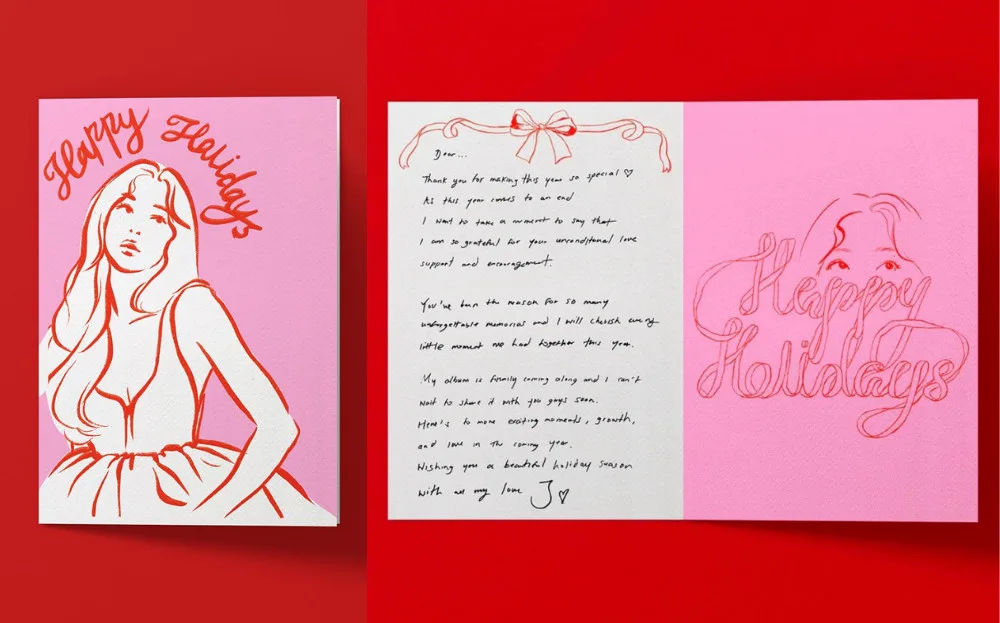 Happy Holidays
Dear...
Thank you for making this year so special ♡
As this year comes to an end
I want to take a moment to say that
I am so grateful for your unconditional love
support and encouragement.
You've been the reason for so many
unforgettable memories and I will cherish every
little moment we had together this year.
My album is finally coming along and I can't
wait to share it with you guys soon.
Here's to more exciting moments, growth,
and love in the coming year.
Wishing you a beautiful holiday season
with all my love J ♡
Happy
Holidays